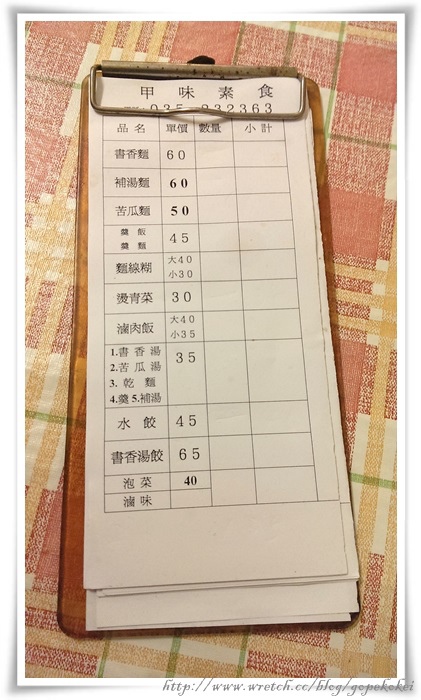 甲味素食
035-232363
品名 單價 數量 小計
書香麵 60
補湯麵 60
苦瓜麵 50
羹飯
羹麵 45
麵線糊 大40 小30
燙青菜 30
滷肉飯 大40 小35
1.書香湯 35
2.苦瓜湯
3.乾麵
4.羹 5.補湯
水餃 45
書香湯餃 65
泡菜 40
滷味
http://www.wretch.cc/blog/gopekokei